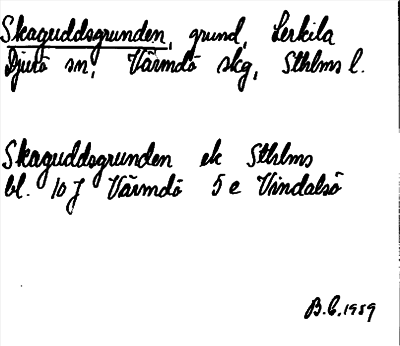 Skaguddsgrunden, grund, Lerkila
Djurö sn, Värmdö skg, Sthlms l.
Skaguddsgrunden ek Sthlms
bl. 10 J Värmdö 5 e Vindalsö
B.C. 1989